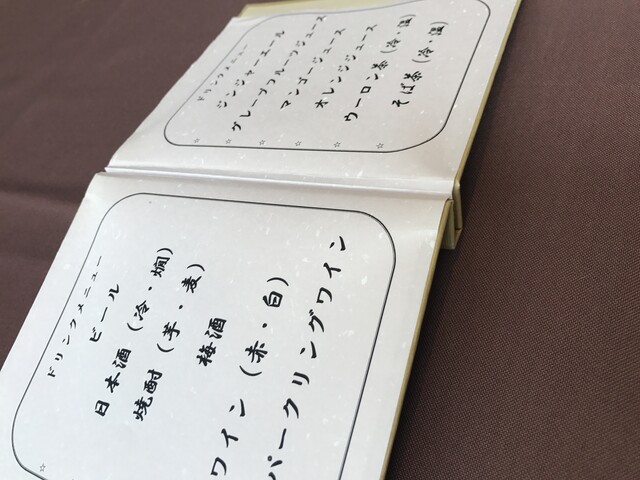 ドリンクメニュー
ビール
日本酒(冷・燗)
焼酎(芋・麦)
梅酒
ワイン(赤・白)
パークリングワイン
ドリンクメニュー
ジンジャーエール
グレープフルーツジュース
マンゴージュース
オレンジジュース
ウーロン茶(冷・温)
そば茶(冷・温)